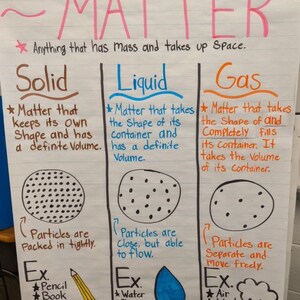 ~ MATTER
* Anything that has mass and takes up space.
Solid
* Matter that
keeps its own
Shape and has
a definite Volume.
Particles are
Packed in tightly.
Ex.
* Pencil
* Book
Liquid
* Matter that takes
the Shape of its
container and
has a definite
Volume.
Particles are
Close, but able
to flow.
Ex.
* Water
Gas
* Matter that takes
the Shape of and
Completely fills
its Container. It
takes the Volume
of its container.
Particles are
Separate and
Move Freely.
Ex.
* Air